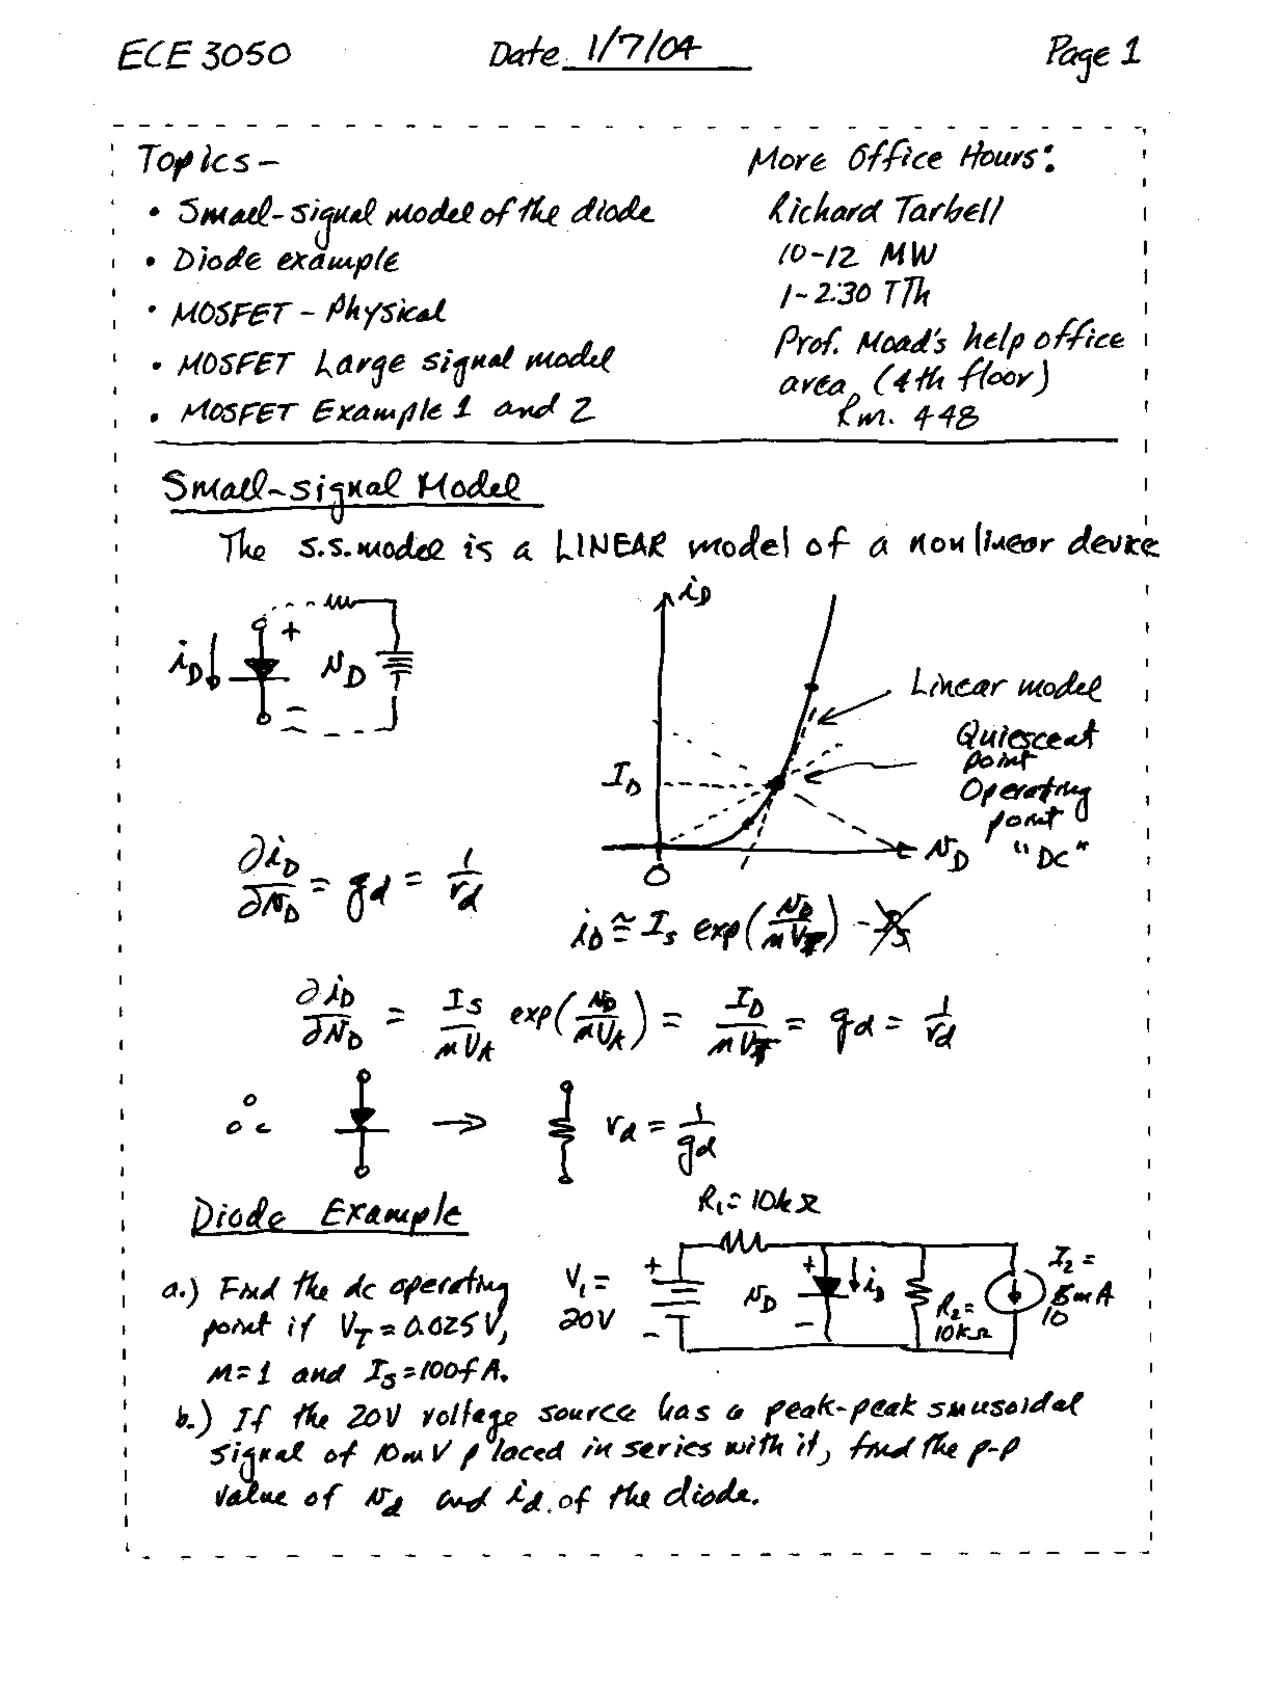 ECE 3050 Date 1/7/04 Page 1
Topics –
• Small-signal model of the diode
• Diode example
• MOSFET – Physical
• MOSFET Large signal model
• MOSFET Example 1 and 2
More Office Hours:
Richard Tarbell
10-12 MW
1-2:30 TTh
Prof. Moad's help office
area, (4th floor)
Rm. 448
Small-signal Model
The s.s. model is a LINEAR model of a nonlinear device
i_D + v_D −
i_D
Linear model
Quiescent
point
Operating
point
"DC"
I_D
v_D
0
∂i_D/∂v_D = g_d = 1/r_d
i_D ≅ I_s exp(v_D/nV_T) −
∂i_D/∂v_D = I_S/nV_t exp(v_D/nV_t) = I_D/nV_T = g_d = 1/r_d
∴ → r_d = 1/g_d
Diode Example
R_1 = 10kΩ
V_1 = 20V
+ −
+ v_D −
i_D
R_2 = 10kΩ
I_2 = mA
10
a.) Find the dc operating
point if V_T = 0.025V,
n=1 and I_S=100fA.
b.) If the 20V voltage source has a peak-peak sinusoidal
signal of 10mV placed in series with it, find the p-p
value of v_d and i_d of the diode.